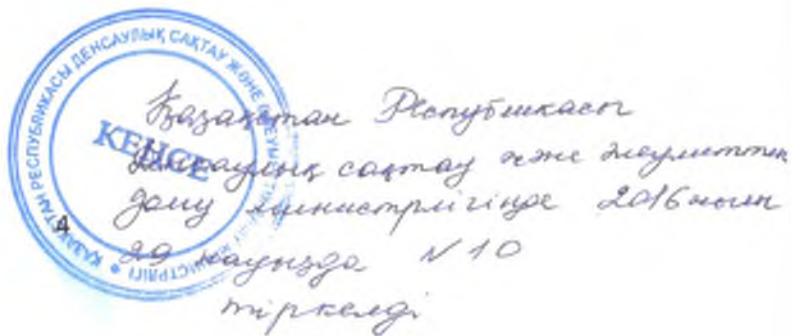 ҚАЗАҚСТАН РЕСПУБЛИКАСЫ ДЕНСАУЛЫҚ САҚТАУ ЖӘНЕ ӘЛЕУМЕТТІК ДАМУ МИНИСТРЛІГІ
КЕҢСЕ
Қазақстан Республикасы
Денсаулық сақтау және әлеуметтік
даму министрлігінде 2016 жылы
29 наурызда N 10
тіркелді
4